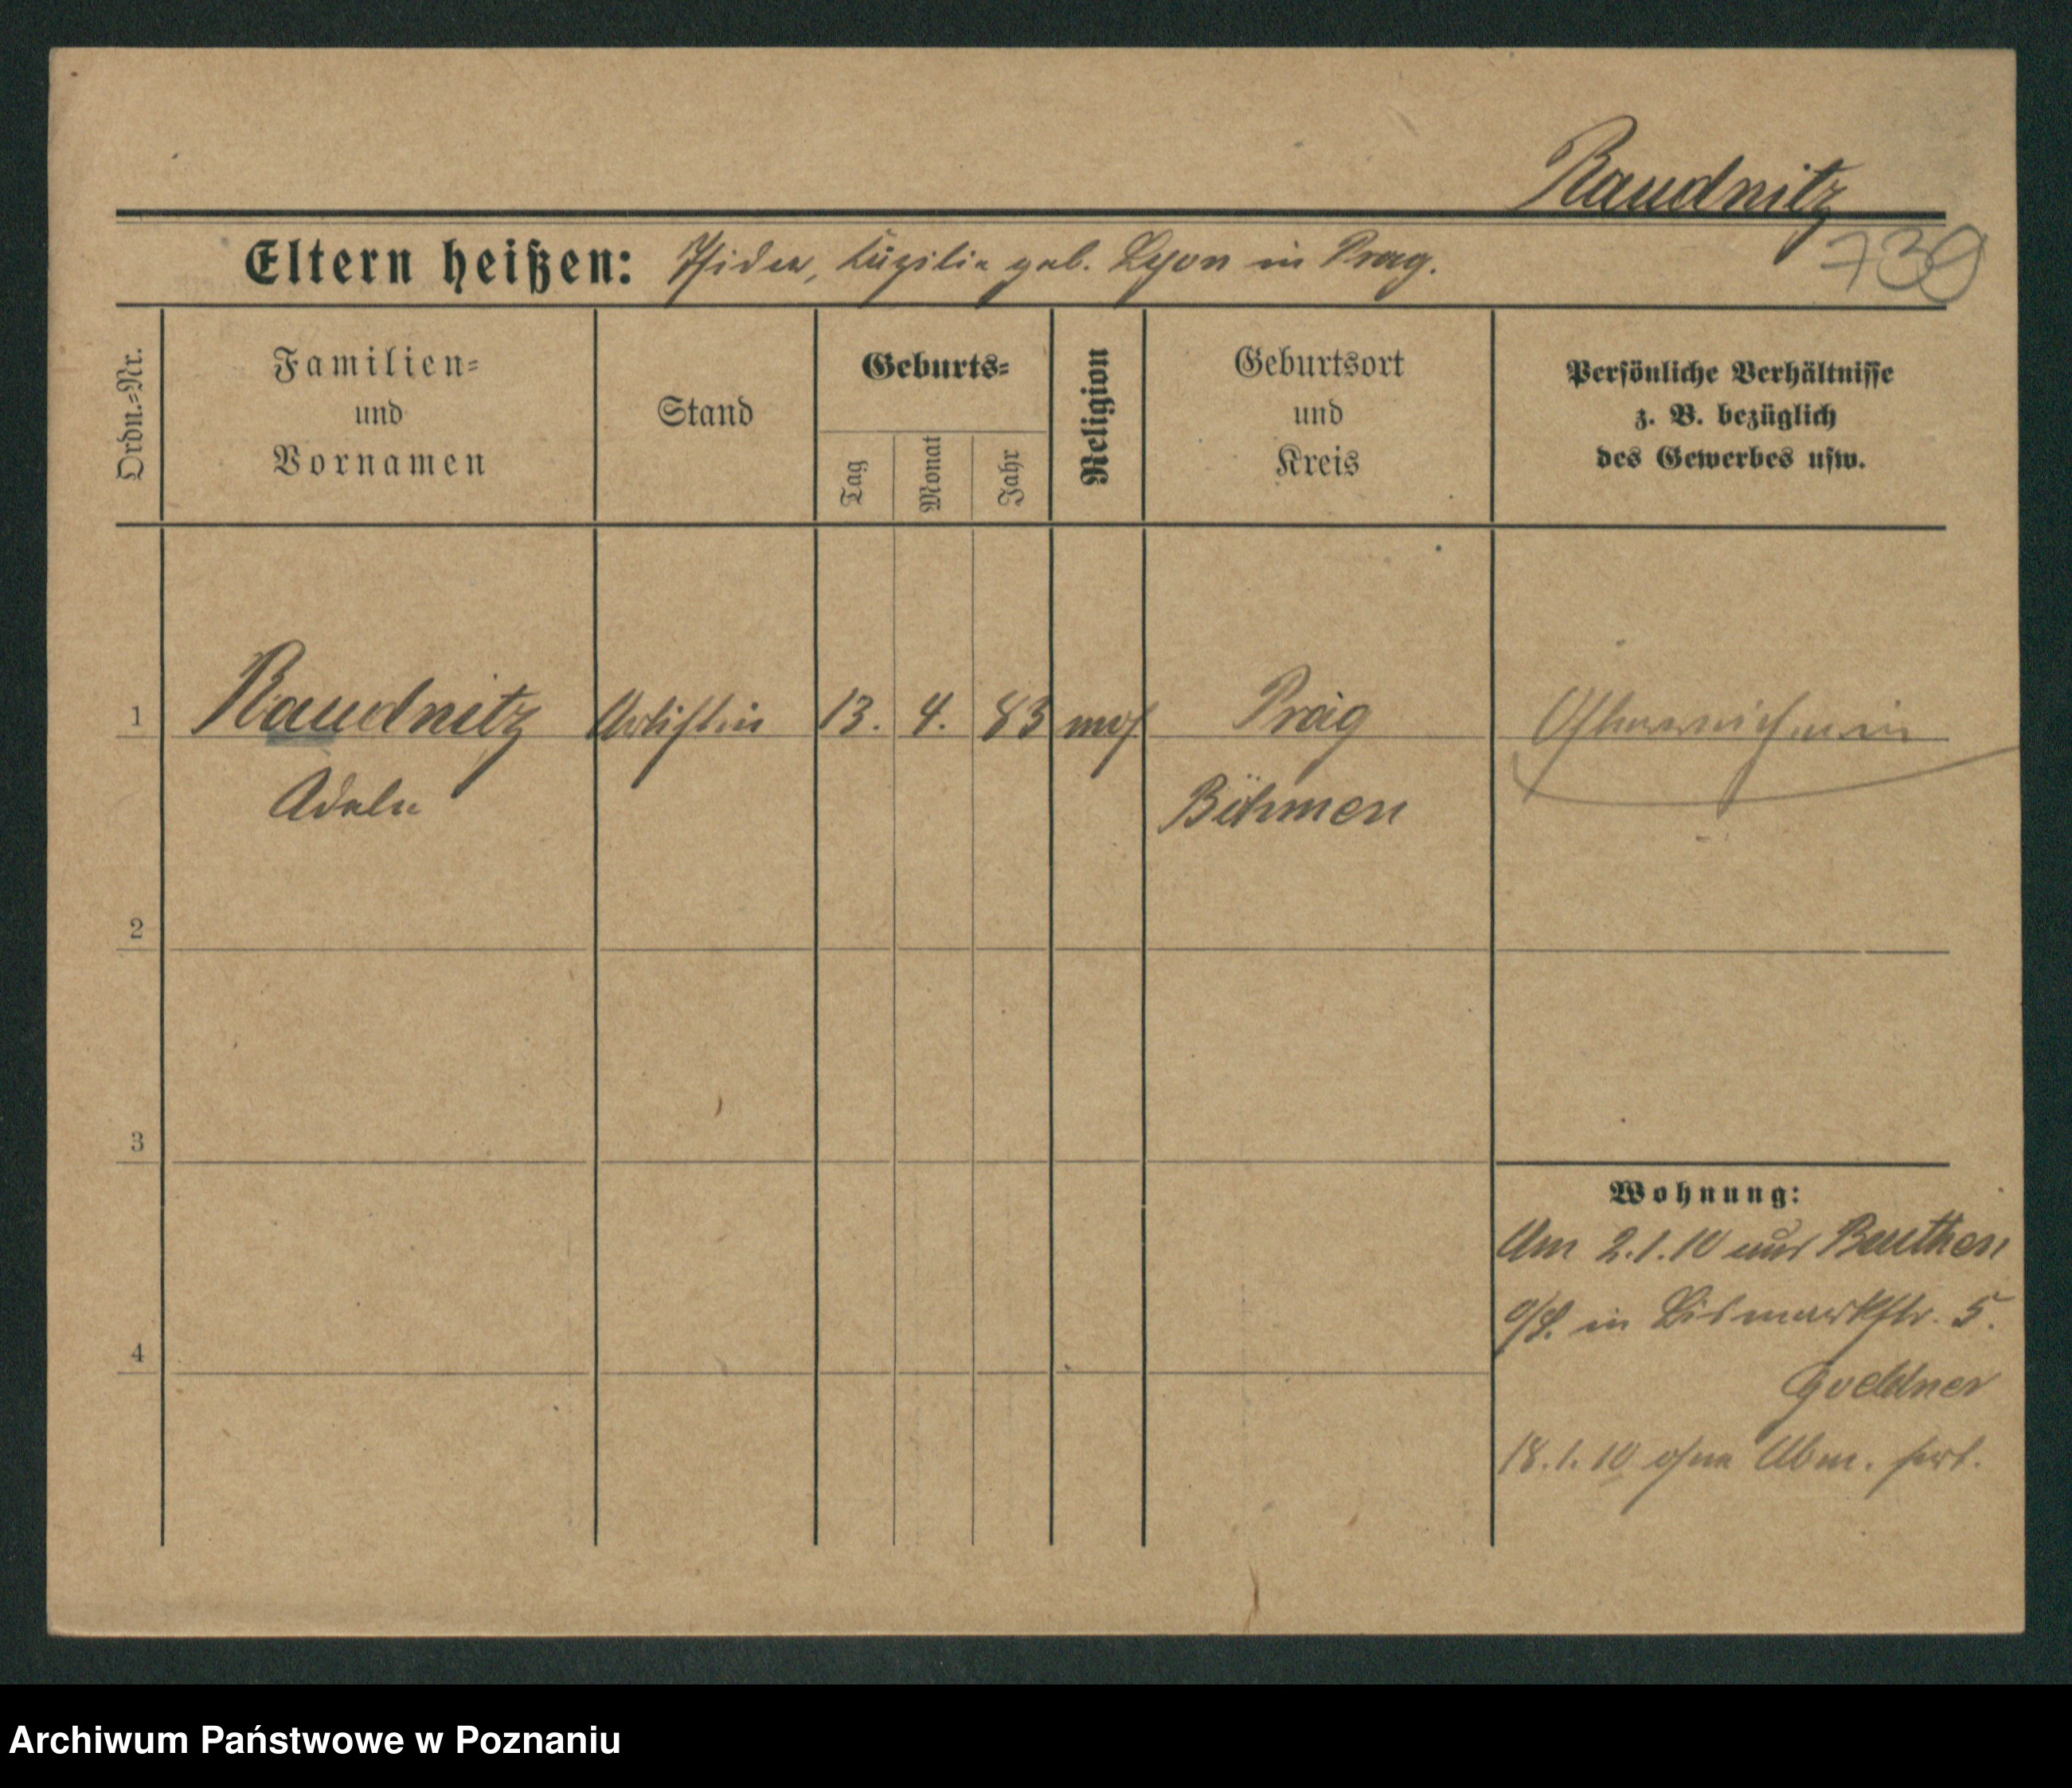 Raudnitz
739
Eltern heißen: Isidor, Cäzilie geb. Lyon in Prag.
Ordn.=Nr.
Familien=
und
Vornamen
Stand
Geburts=
Tag
Monat
Jahr
Religion
Geburtsort
und
Kreis
Persönliche Verhältnisse
z. B. bezüglich
des Gewerbes usw.
1 Raudnitz Artistin 13. 4. 83 mos Prag Österreicherin
Adele Böhmen
2
3
4
Wohnung:
Am 2.1.10 aus Beuthen
o/S. in Bismarkstr. 5.
Goeldner
18.1.10 ohne Abm. fort.
Archiwum Państwowe w Poznaniu